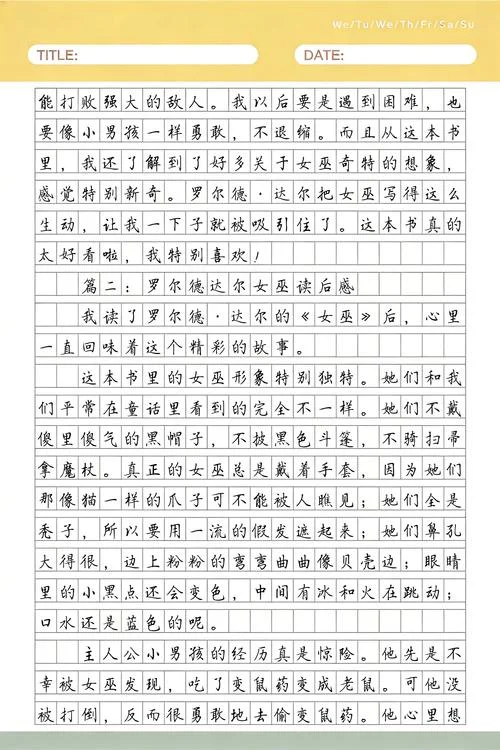 We/Tu/We/Th/Fr/Sa/Su
TITLE:
DATE:
能打败强大的敌人。我以后要是遇到困难，也
要像小男孩一样勇敢，不退缩。而且从这本书
里，我还了解到了好多关于女巫奇特的想象，
感觉特别新奇。罗尔德·达尔把女巫写得这么
生动，让我一下子就被吸引住了。这本书真的
太好看啦，我特别喜欢！
篇二：罗尔德达尔女巫读后感
我读了罗尔德·达尔的《女巫》后，心里
一直回味着这个精彩的故事。
这本书里的女巫形象特别独特。她们和我
们平常在童话里看到的完全不一样。她们不戴
傻里傻气的黑帽子，不披黑色斗篷，不骑扫帚
拿魔杖。真正的女巫总是戴着手套，因为她们
那像猫一样的爪子可不能被人瞧见；她们全是
秃子，所以要用一流的假发遮起来；她们鼻孔
大得很，边上粉粉的弯弯曲曲像贝壳边；眼睛
里的小黑点还会变色，中间有冰和火在跳动；
口水还是蓝色的呢。
主人公小男孩的经历真是惊险。他先是不
幸被女巫发现，吃了变鼠药变成老鼠。可他没
被打倒，反而很勇敢地去偷变鼠药。他心里想